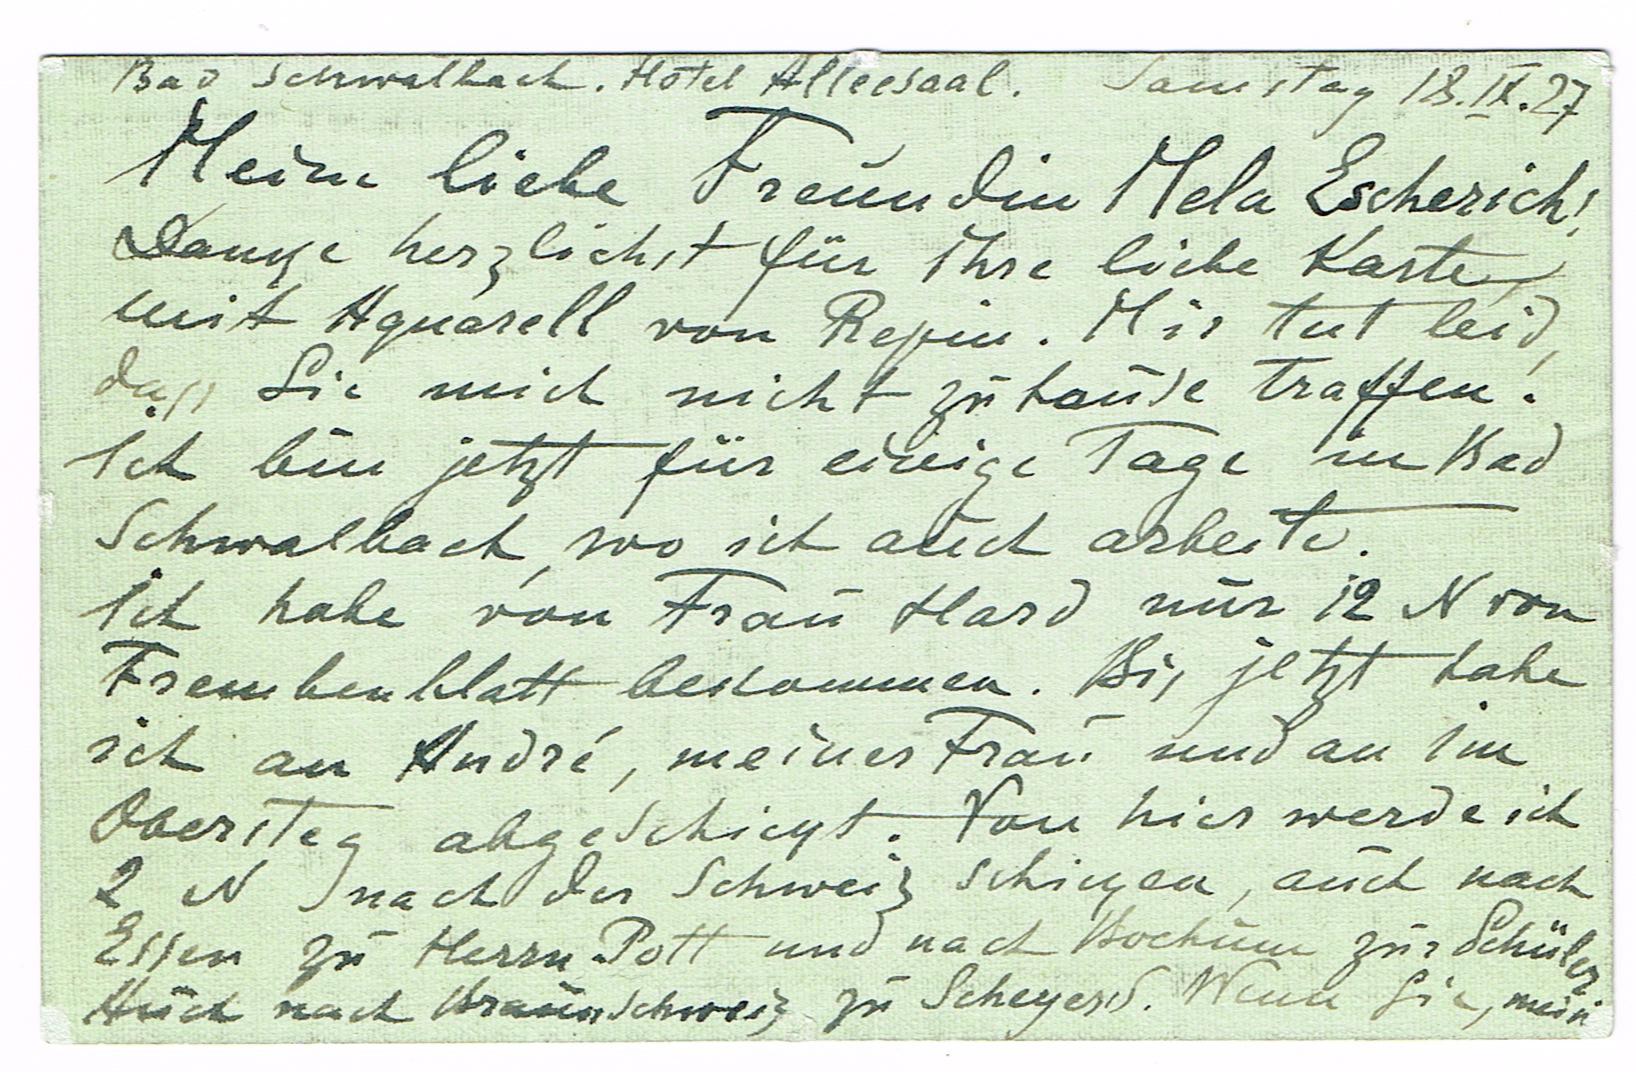 Bad Schwalbach. Hotel Alleesaal. Samstag 18.IX.27
Meine liebe Freundin Mela Escherich!
Danke herzlichst für Ihre liebe Karte,
mit Aquarell von Repin. Mir tut leid,
dass Sie mich nicht zuhause traffen.
Ich bin jetzt für einige Tage in Bad
Schwalbach, wo ich auch arbeite.
Ich habe von Frau Hard nur 12 N von
Frembenblatt bekommen. Bis jetzt habe
ich an André, meiner Frau und an Im
Obersteg abgeschickt. Von hier werde ich
2 N nach der Schweiz schicken, auch nach
Essen zu Herrn Pott und nach Bochum zur Schüler
Auch nach Braunschweig zu Scheyers. Wenn Sie, mein